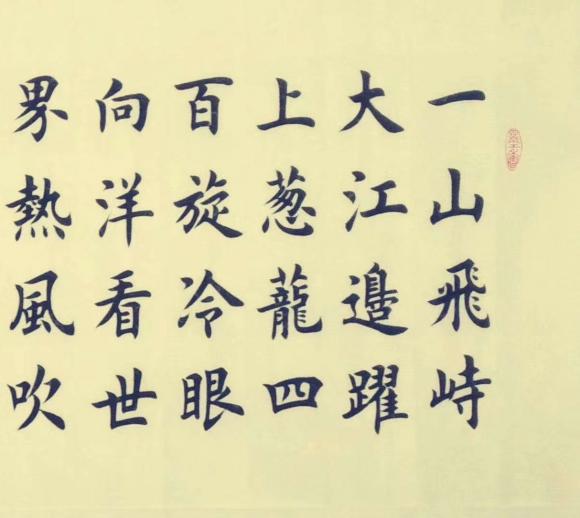 一山飛峙
大江邊躍
上葱蘢四
百旋冷眼
向洋看世
界熱風吹